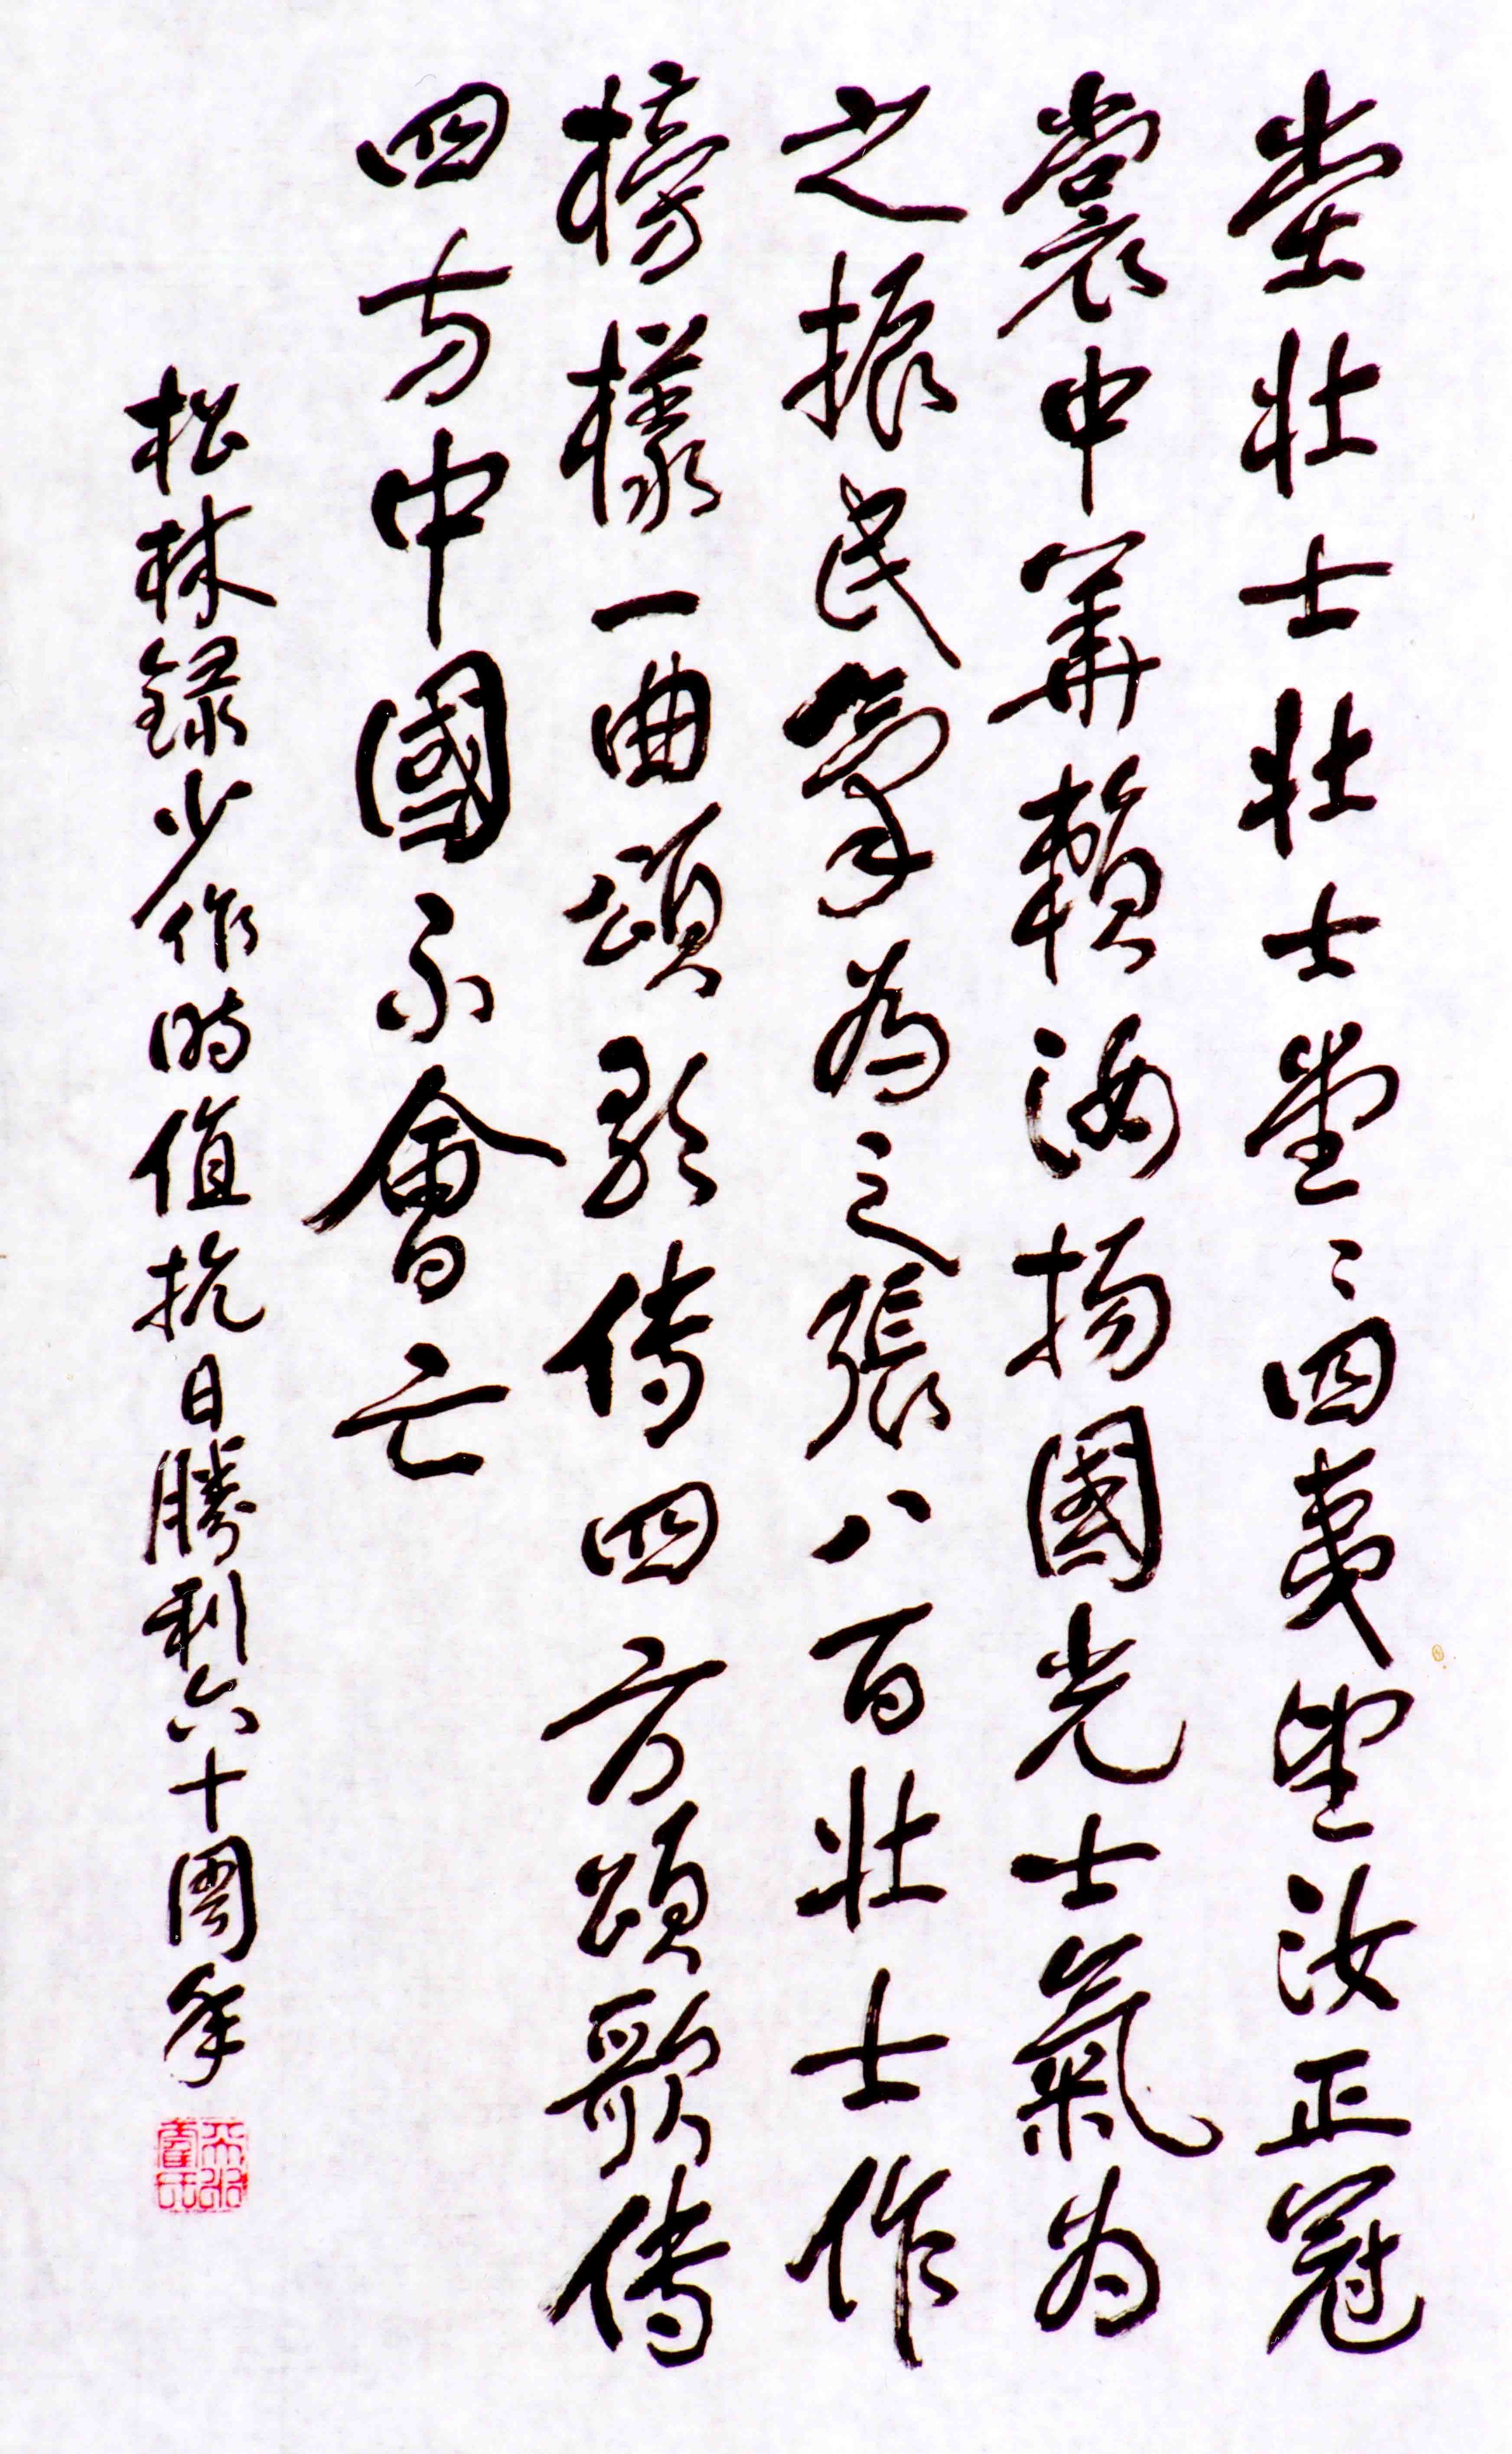 堂壮士壮士堂〻四夷望汝正冠
裳中華賴汝揚國光士氣为
之振民氣為之張八百壯士作
榜樣一曲頌歌傳四方頌歌傳
四方中國不會亡
松林録少作時值抗日勝利六十周年